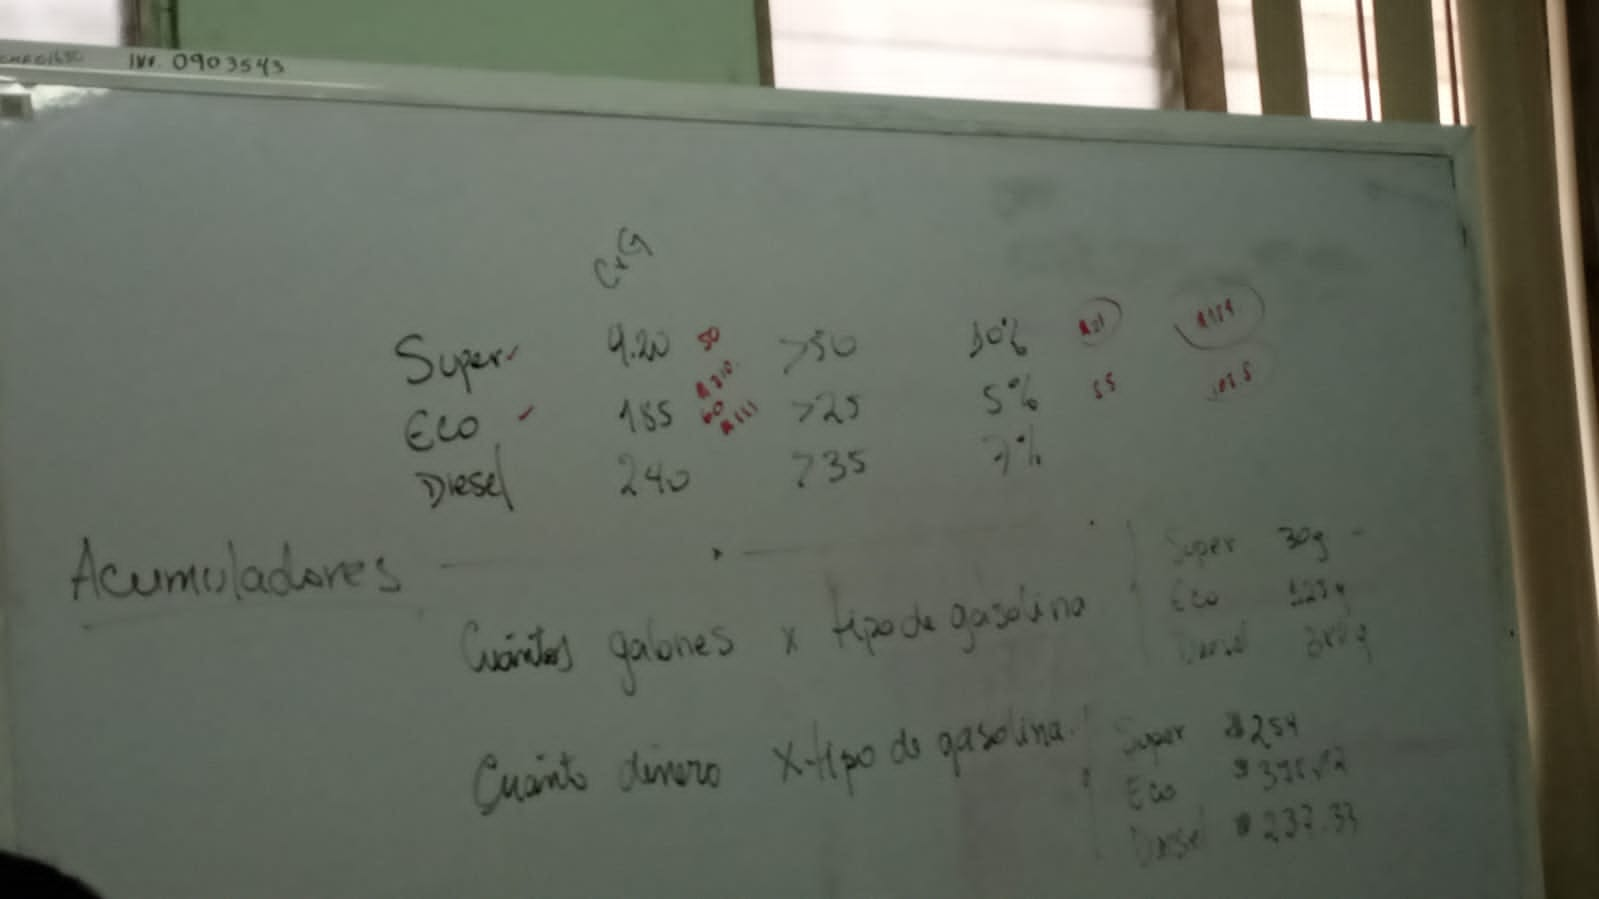 INV. 0903543
CxG
Super 4.20 50 >50 10%
Eco 185 60 >25 5% 5.5
Diesel 240 >35 7%
Acumuladores
Cuántos galones x tipo de gasolina
Super 30g
Eco 125g
Diesel
Cuánto dinero x tipo de gasolina
Super $254
Eco
Diesel $237.33